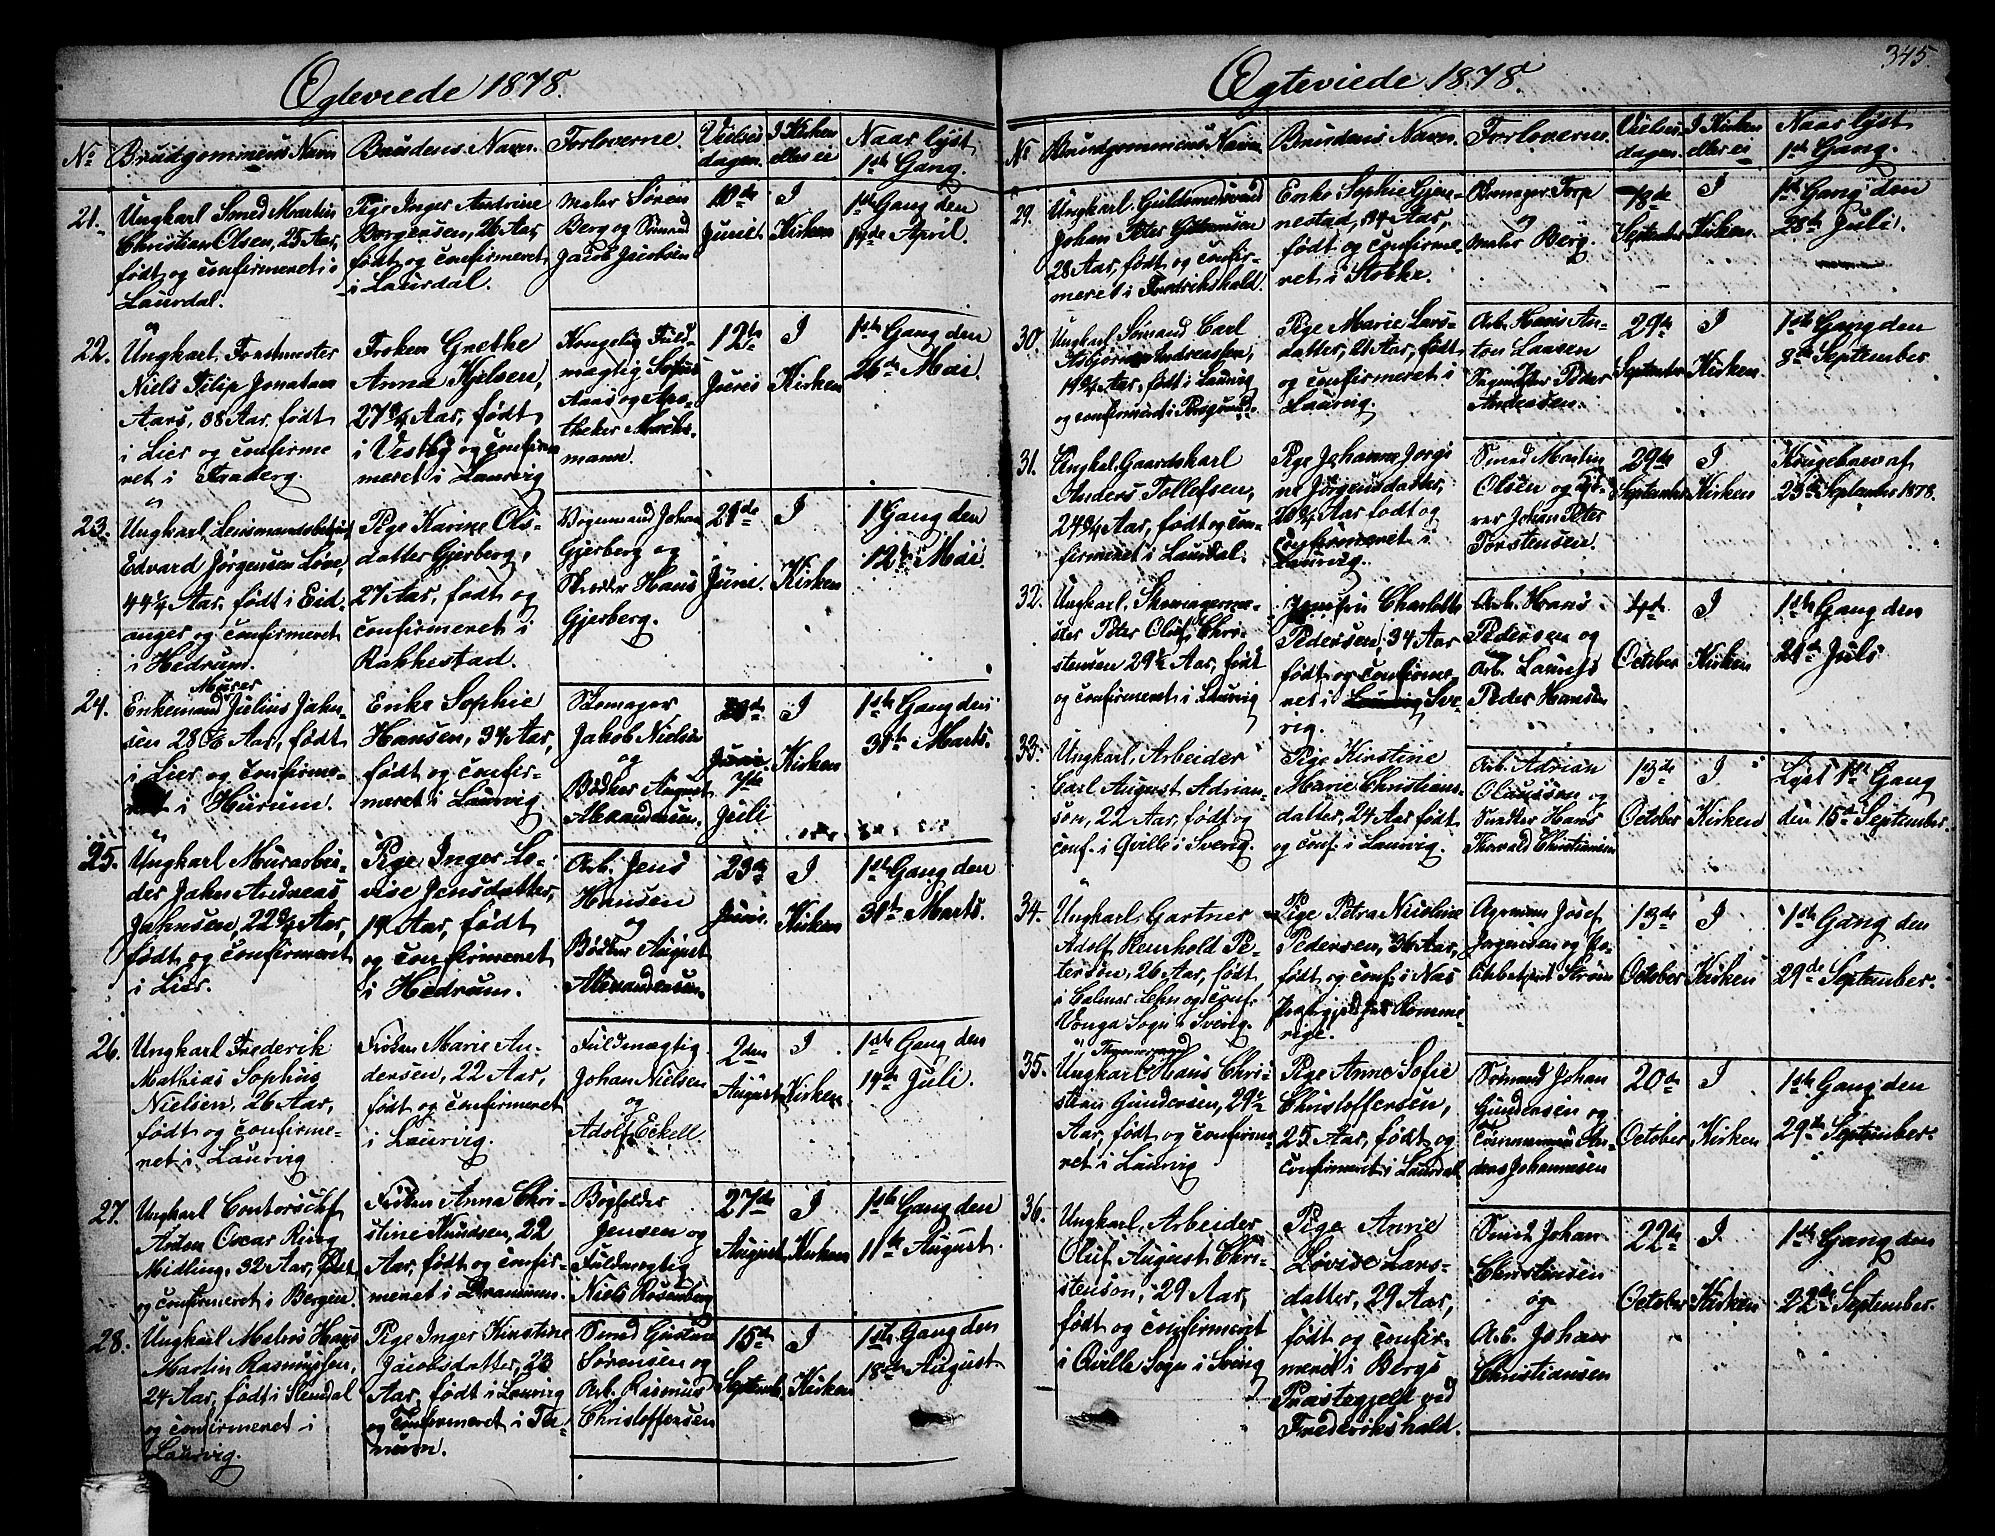 345.
Ægteviede 1878.
No
Brudgommens Navn
Brudens Navn.
Forloverne.
Vielses
dagen.
I Kirken
eller ei
Naar lyst
1ste Gang.
21.
Ungkarl Smed Martin
Christian Olsen, 25 Aar,
født og confirmeret i
Laurdal.
Pige Inger Andrine
Borgersen, 26 Aar,
født og confirmeret
i Laurdal.
Maler Søren
Berg og Sømand
Jacob Jacobsen
10de
Juni
I
Kirken
1ste Gang den
14de April.
22.
Ungkarl Forstmester
Niels Filip Jonatan
Aars, 38 Aar, født
i Lier og confirme
ret i
Frøken Grethe
Anna Kjelsen,
27 3/4 Aar, født
i Vestby og confir
meret i Laurvig
Kongelig Fuld-
mægtig Sofus
Aars og Apo-
theker
mann.
12te
Juni
I
Kirken
1ste Gang den
26de Mai.
23.
Ungkarl Lensmandsbetjent
Edvard Jørgensen Løve,
44 1/4 Aar, født i Eid-
anger og confirmeret
i Hedrum.
Pige Karine Ols-
datter Gjerberg,
27 Aar, født og
confirmeret i
Rakkestad.
Vognmand Johan
Gjerberg og
Skræder Hans
Gjerberg.
21de
Juni.
I
Kirken
1 Gang den
12te Mai.
24.
Murer
Enkemand Julius Jahn-
sen 28 Aar, født
i Lier og confirme-
ret i Hurum.
Enke Sophie
Hansen, 34 Aar,
født og confir-
meret i Laurvig
Skomager
Jakob Nielsen
og
Bødker August
Alexandersen.
Juni
7de
Juli
I
Kirken
1ste Gang den
31te Marts.
25.
Ungkarl Murarbei-
der Jahn Andreas
Jahnsen, 22 3/4 Aar,
født og confirmeret
i Lier.
Pige Inger Lo-
vise Jensdatter,
19 Aar, født
og confirmeret
i Hedrum.
Arb. Jens
Hansen
og
Bødker August
Alexandersen.
23de
Juni.
I
Kirken
1ste Gang den
31te Marts.
26.
Ungkarl Frederik
Mathias Sophus
Nielsen, 26 Aar,
født og confirme-
ret i Laurvig
Frøken Marie An-
dersen, 22 Aar,
født og confirmeret
i Laurvig.
Fuldmægtig
Johan Nielsen
og
Adolf Eckell.
2den
August
I
Kirken
1ste Gang den
14de Juli.
27.
Ungkarl Contorschef
Anton Oscar Ring
Midling, 32 Aar, født
og confirmeret i Bergen.
Frøken Anna Chri-
stine Knudsen, 22
Aar, født og confir-
meret i Drammen.
Bogholder
Jensen og
Fuldmægtig
Niels Rosenberg
27de
August
I
Kirken
1ste Gang den
11te August.
28.
Ungkarl Hans
Martin Rasmussen,
24 Aar, født i
og confirmeret i
Laurvig.
Pige Inger Kirstine
Jacobsdatter, 23
Aar, født i Laurvig
og Confirmeret i Tje-
mum.
Smed Gustav
Sørensen og
Arb. Rasmus
Christoffersen
15de
Septemb.
I
Kirken
1ste Gang den
18de August.
Ægteviede 1878.
No
Brudgommens Navn
Brudens Navn.
Forloverne.
Vielses
dagen.
I Kirken
eller ei
Naar lyst
1ste Gang.
29.
Ungkarl, Guldsmedsvend
Johan Peter
28 Aar, født og confir-
meret i Fredrikshald.
Enke Sophie Gjen-
nestad, 44 Aar,
født og confirme-
ret i Stokke.
Skomager Torp
og
Maler Berg.
18de
September
I
Kirken.
1ste Gang den
28de Juli.
30
Ungkarl Sømand Carl
Asbjørn Andreassen,
19 3/4 Aar, født i Laurvig
og confirmeret i Porsgrund.
Pige Marie Lars-
datter, 21 Aar, født
og confirmeret i
Laurvig.
Arb. Hans An-
ton Larsen
og
Peter
Andersen.
29de
September
I
Kirken.
1ste Gang den
8de September.
31.
Ungkarl, Gaardskarl
Anders Tollefsen,
24 3/4 Aar, født og con-
firmeret i Laurdal.
Pige Johanne Jorgi
ne Jørgensdatter,
20 3/4 Aar født og
confirmeret i
Laurvig.
Smed Martin
Olsen og
Johan Peter
Torstensen.
29de
September
I
Kirken
Kongebrev af
23de September 1878.
32.
Ungkarl, Skomagerme-
ster Peter Oluf Chri-
stensen 29 1/2 Aar, født
og confirmeret i Laurvig
Jomfru Charlotte
Pedersen, 34 Aar
født og confirme-
ret i Laurvig Sve-
rig.
Arb. Hans
Pedersen og
Arb. Laurits
Peder Hansen
4de
October
I
Kirken
1ste Gang den
21de Juli
33.
Ungkarl, Arbeider
Carl August Adrian-
son, 22 Aar, født og
conf. i Qville i Sverig.
Pige Kirstine
Marie Christians-
datter, 24 Aar født
og conf. i Laurvig.
Arb. Adrian
Olaussen og
Snedker Hans
Thorvald Christiansen
13de
October
I
Kirken
Lyst 1ste Gang
den 15de September.
34.
Ungkarl, Gartner
Adolf Reinhold Pe-
terson, 26 Aar, født
i Calmar Lehn og conf.
Vonga Sogn i Sverig.
Pige Petra Nicoline
Pedersen, 36 Aar,
født og conf. i Næs
Præstegjeld paa Romme-
rige.
Agronom Josef
Jørgensen og Po-
litibetjent Strøm
13de
October
I
Kirken
1ste Gang den
29de September.
35.
Ungkarl Hans Chri-
stian Gundersen, 29 1/2
Aar, født og confirme-
ret i Laurvig
Pige Anne Sofie
Christoffersen,
25 Aar, født og
confirmeret i Laurdal
Sømand Johan
Gundersen og
Tømmermand An-
dreas Johannesen
20de
October
I
Kirken
1ste Gang den
29de September.
36.
Ungkarl, Arbeider
Oluf August Chri-
stenson, 29 Aar,
født og confirmeret
i Qville Sogn i Sverig
Pige Anne
Lovise Lars-
datter, 29 Aar,
født og confir-
meret i Bergs
Præstegjeld ved
Frederikshald.
Smed Johan
Christensen
og
Arb. Johan
Christiansen
22de
October
I
Kirken
1ste Gang den
22de September.